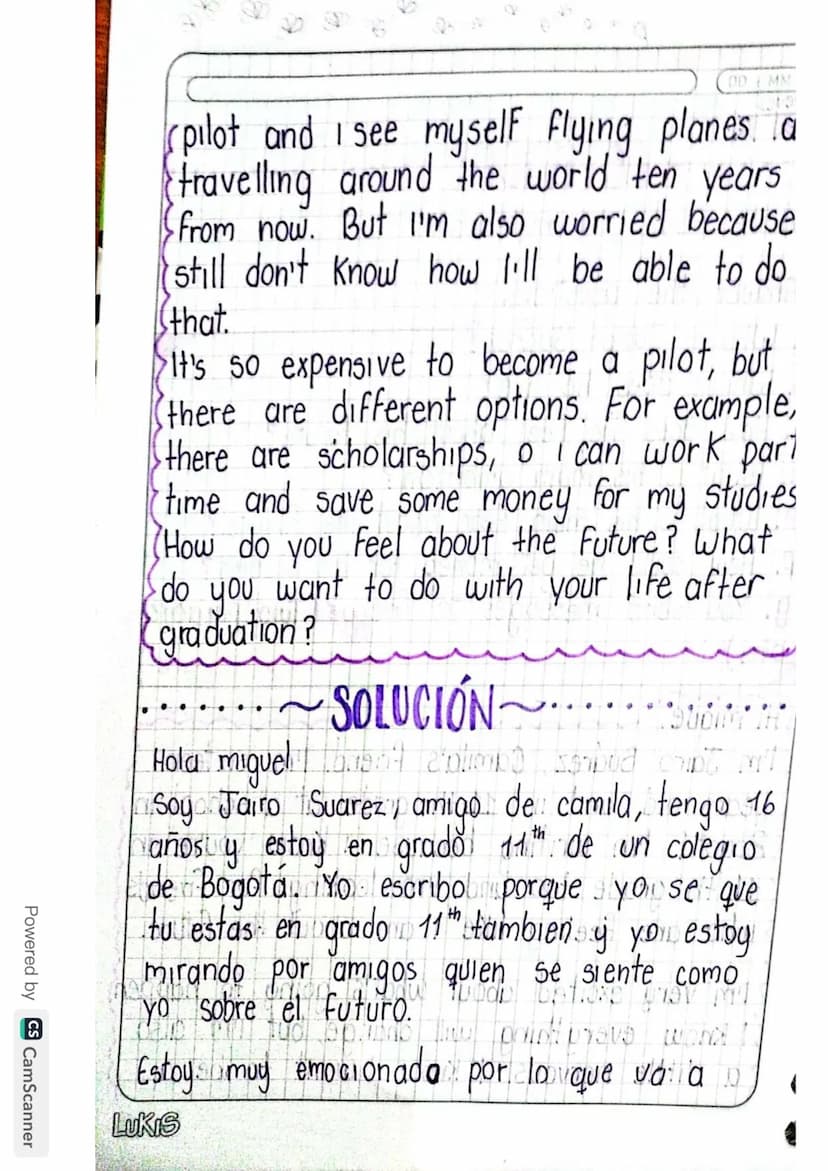 DD MM
pilot and I see myself flying planes a
travelling around the world ten years
from now. But I'm also worried because
still don't know how I'll be able to do
that.
It's so expensive to become a pilot, but
there are different options. For example,
there are scholarships, o I can work part
time and save some money for my studies
How do you feel about the future? What
do you want to do with your life after
graduation?
~SOLUCIÓN~
Hola miguel
Soy Jairo Suarez, amigo de camila, tengo 16
años y estoy en grado 11th de un colegio
de Bogotá. Yo escribo porque yo se que
tu estas en grado 11th tambien y yo estoy
mirando por amigos quien se siente como
yo sobre el futuro.
Estoy muy emocionada por lo que va a
LUKIS
Powered by CS CamScanner